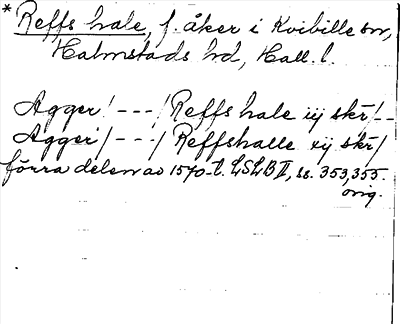 * Reffs hale, f. åker i Kvibille sn,
Halmstads hd, Hall. l.
Agger / - - - / Reffs hale iij skr / - -
Agger / - - - / Reffshalle xij skr /
förra delen av 1570-t. LSLB II, ss. 353, 355.
orig.